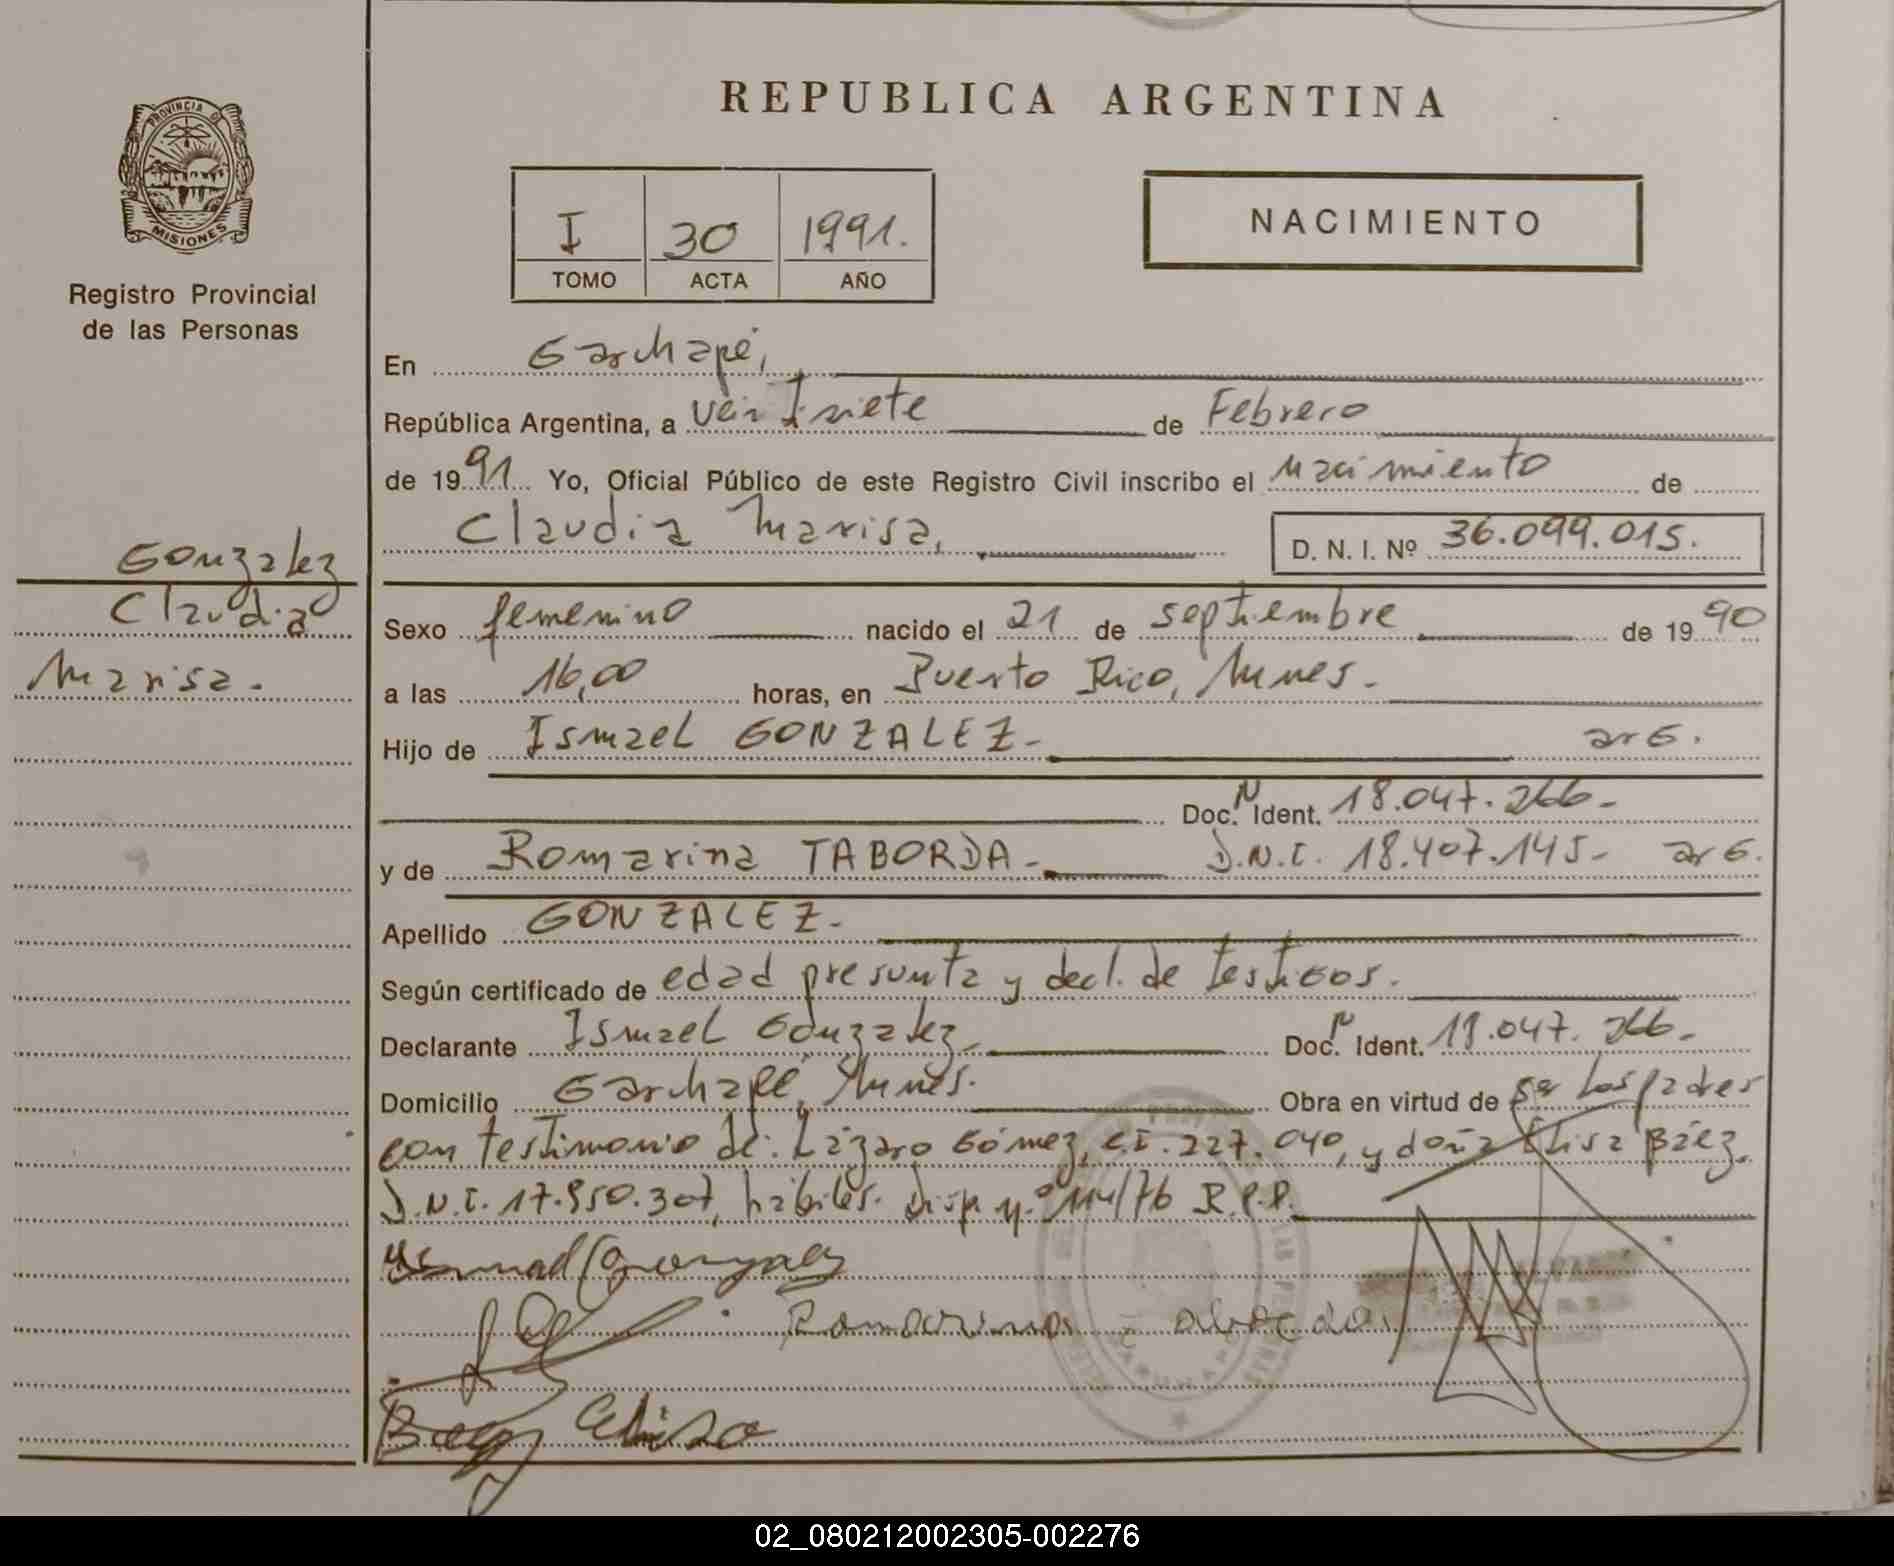 PROVINCIA DE
MISIONES
Registro Provincial
de las Personas
Gonzalez
Claudia
Marisa.
REPUBLICA ARGENTINA
I 30 1991.
TOMO ACTA AÑO
NACIMIENTO
En Garuhapé,
República Argentina, a veintisiete de Febrero
de 1991 Yo, Oficial Público de este Registro Civil inscribo el nacimiento de
Claudia Marisa, D. N. I. Nº 36.099.015.
Sexo femenino nacido el 21 de septiembre de 1990
a las 16,00 horas, en Puerto Rico, Mnes.
Hijo de Ismael GONZALEZ- arg.
Doc. N Ident. 18.047.266-
y de Romarina TABORDA- D.N.I. 18.407.145- arg.
Apellido GONZALEZ-
Según certificado de edad presunta y decl. de testigos.
Declarante Ismael Gonzalez- Doc. N Ident. 18.047.266-
Domicilio Garuhapé, Mnes. Obra en virtud de ser los padres
con testimonio de: Lázaro Gómez, C.I. 227.040, y doña Elisa Báez,
D.N.I. 17.950.307, hábiles. Disp. nº 114/76 R.P.P.
Ismael Gonzalez
Romarina
Baez Elisa
02_080212002305-002276